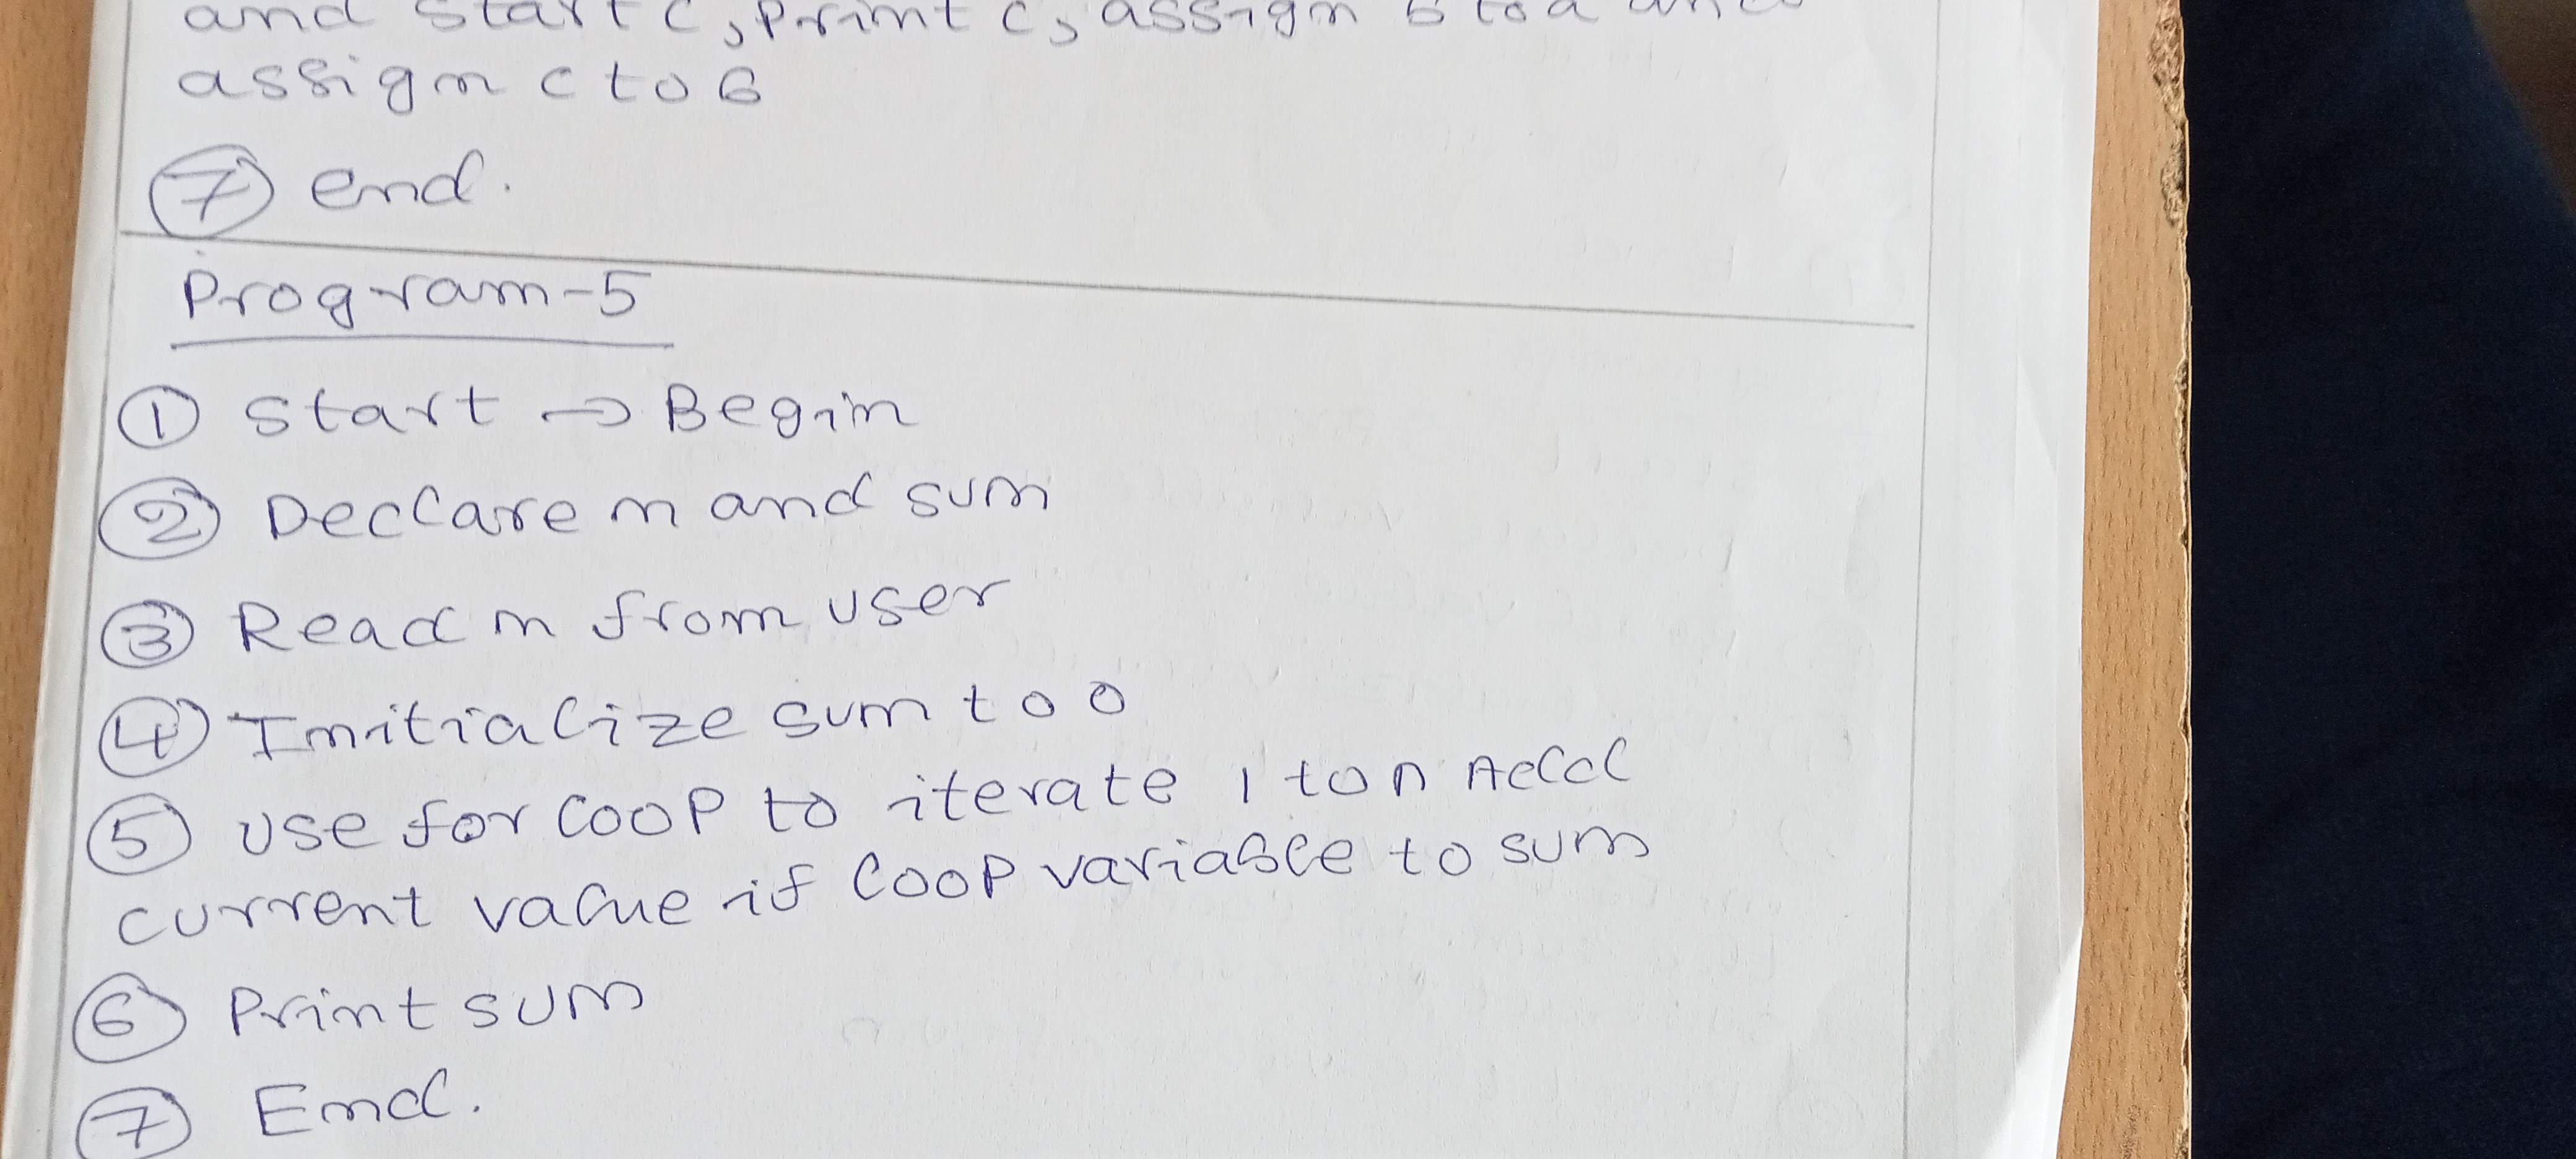 and start c, print c, assign b to a and
assign c to b
⑦ end.
Program-5
① start → Begin
② Declare n and sum
③ Read n from user
④ Initialize sum to 0
⑤ use for loop to iterate 1 to n Add
current value if loop variable to sum
⑥ Print sum
⑦ End.